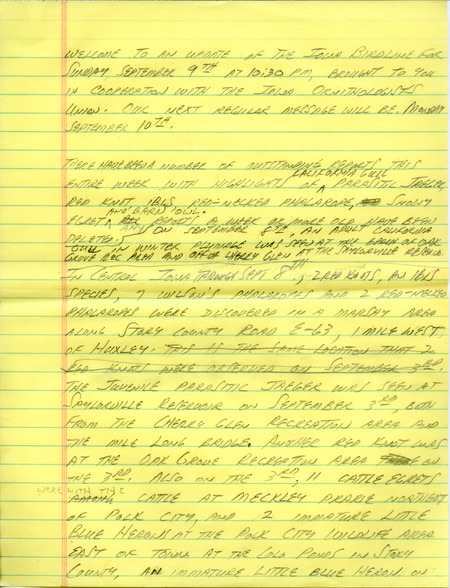 WELCOME TO AN UPDATE OF THE IOWA BIRDLINE FOR
SUNDAY SEPTEMBER 9TH AT 10:30 PM, BROUGHT TO YOU
IN COOPERATION WITH THE IOWA ORNITHOLOGISTS
UNION. OUR NEXT REGULAR MESSAGE WILL BE MONDAY
SEPTEMBER 10TH.
THERE HAVE BEEN A NUMBER OF OUTSTANDING REPORTS THIS
CALIFORNIA GULL
ENTIRE WEEK WITH HIGHLIGHTS OF PARASITIC JAEGER,
RED KNOT, IBIS, RED-NECKED PHALAROPE, SNOWY
AND BARN OWL.
EGRET ANY REPORTS A WEEK OR MORE OLD HAVE BEEN
DELETED. ON SEPTEMBER 8TH, AN ADULT CALIFORNIA
GULL IN WINTER PLUMAGE WAS SEEN AT THE BEACH OF OAK
GROVE REC AREA AND OFF OF CHERRY GLEN AT THE SAYLORVILLE RESERV.
IN CENTRAL IOWA THROUGH SEPT 8TH, 2 RED KNOTS, AN IBIS
SPECIES, 7 WILSON'S PHALAROPES AND 2 RED-NECKED
PHALAROPES WERE DISCOVERED IN A MARSHY AREA
ALONG STORY COUNTY ROAD E-63, 1 MILE WEST
OF HUXLEY. THIS IS THE SAME LOCATION THAT 2
RED KNOTS WERE OBSERVED ON SEPTEMBER 3RD.
THE JUVENILE PARASITIC JAEGER WAS SEEN AT
SAYLORVILLE RESERVOIR ON SEPTEMBER 3RD, BOTH
FROM THE CHERRY GLEN RECREATION AREA AND
THE MILE LONG BRIDGE. ANOTHER RED KNOT WAS
AT THE OAK GROVE RECREATION AREA ON
THE 3RD. ALSO ON THE 3RD, 11 CATTLE EGRETS
WERE WITH THE
AMONG CATTLE AT MECKLEY PRARIE NORTHWEST
OF POLK CITY, AND 2 IMMATURE LITTLE
BLUE HERONS AT THE POLK CITY WILDLIFE AREA
EAST OF TOWN. AT THE COLO PONDS IN STORY
COUNTY, AN IMMATURE LITTLE BLUE HERON ON